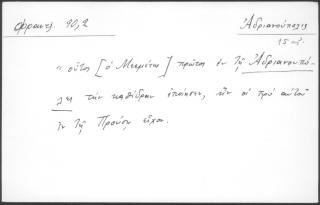 Φραντζ. 90,2
Ἀδριανούπολις
15 αἰ.
"οὗτος [ὁ Μεχμέτης] πρῶτος ἐν τῇ Ἀδριανουπό-
λει τὴν καθέδραν ἐποίησεν, ἣν οἱ πρὸ αὐτοῦ
ἐν τῇ Προύσῃ εἶχον.